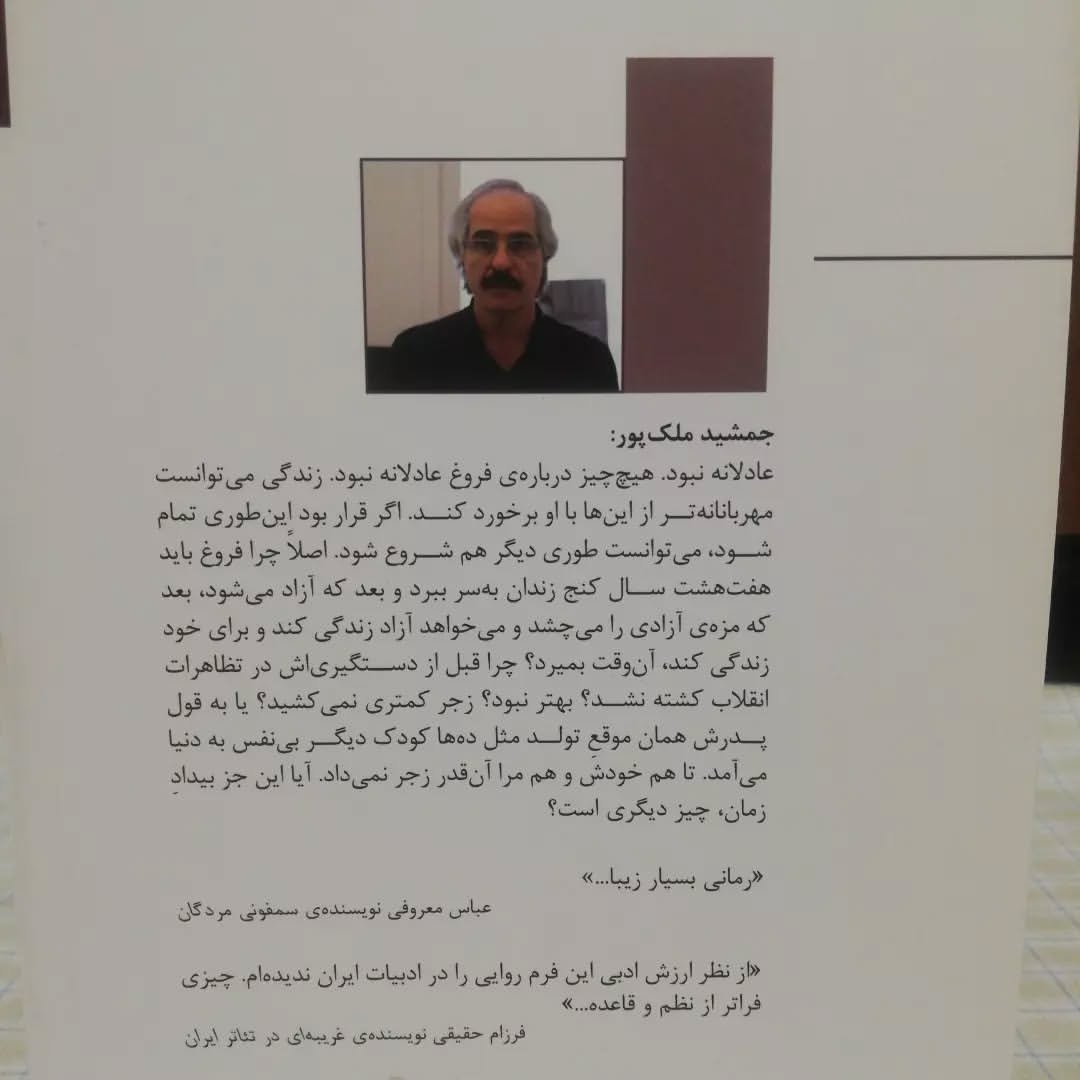 جمشید ملک‌پور:
عادلانه نبود. هیچ‌چیز درباره‌ی فروغ عادلانه نبود. زندگی می‌توانست
مهربانانه‌تر از این‌ها با او برخورد کند. اگر قرار بود این‌طوری تمام
شود، می‌توانست طوری دیگر هم شروع شود. اصلاً چرا فروغ باید
هفت‌هشت سال کنج زندان به‌سر ببرد و بعد که آزاد می‌شود، بعد
که مزه‌ی آزادی را می‌چشد و می‌خواهد آزاد زندگی کند و برای خود
زندگی کند، آن‌وقت بمیرد؟ چرا قبل از دستگیری‌اش در تظاهرات
انقلاب کشته نشد؟ بهتر نبود؟ زجر کمتری نمی‌کشید؟ یا به قول
پدرش همان موقعِ تولد مثل ده‌ها کودک دیگر بی‌نفس به دنیا
می‌آمد. تا هم خودش و هم مرا آن‌قدر زجر نمی‌داد. آیا این جز بیدادِ
زمان، چیز دیگری است؟
«رمانی بسیار زیبا...»
عباس معروفی نویسنده‌ی سمفونی مردگان
«از نظر ارزش ادبی این فرم روایی را در ادبیات ایران ندیده‌ام. چیزی
فراتر از نظم و قاعده...»
فرزام حقیقی نویسنده‌ی غریبه‌ای در تئاتر ایران